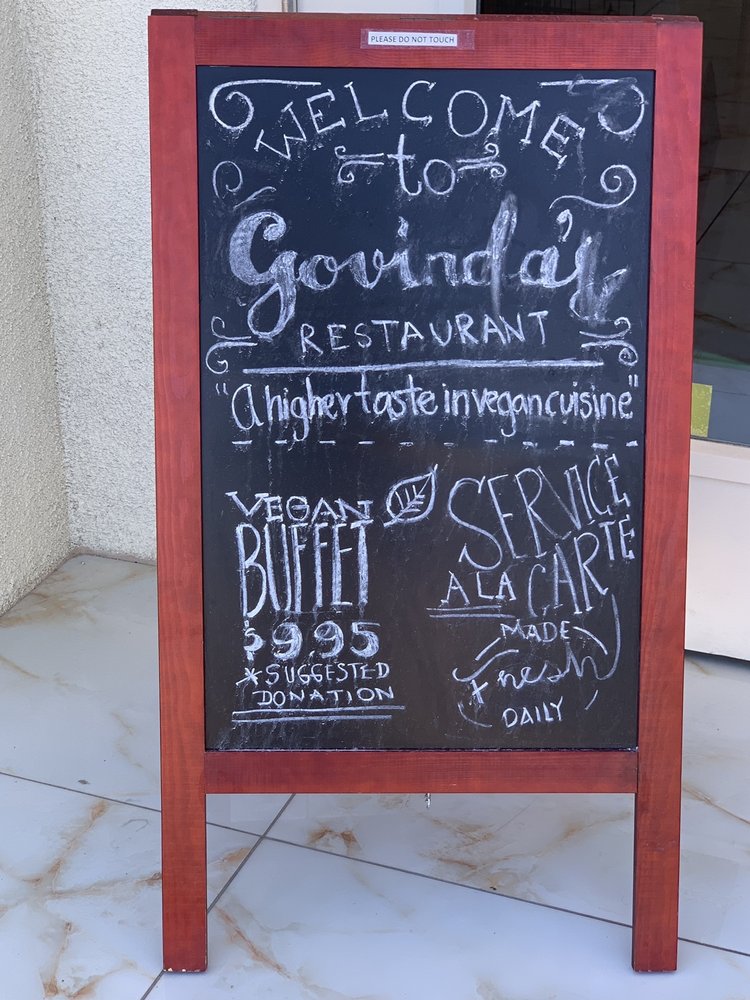 PLEASE DO NOT TOUCH
WELCOME
to
Govinda's
RESTAURANT
"A higher taste in vegan cuisine"
VEGAN
BUFFET
$9.95
*SUGGESTED
DONATION
SERVICE
A LA CARTE
MADE
Fresh
DAILY